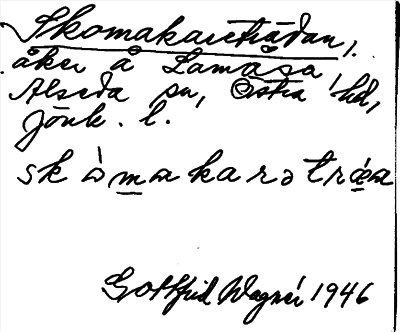 Skomakareträdan,
åker å Lamåsa
Alseda sn, Östra hd,
Jönk. l.
skòmakarətrǽa
Gottfrid Wagnér 1946